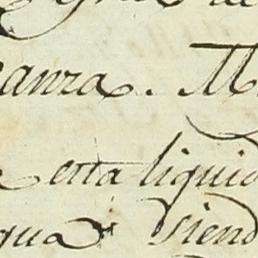 anza. M
esta liquid
qua siend